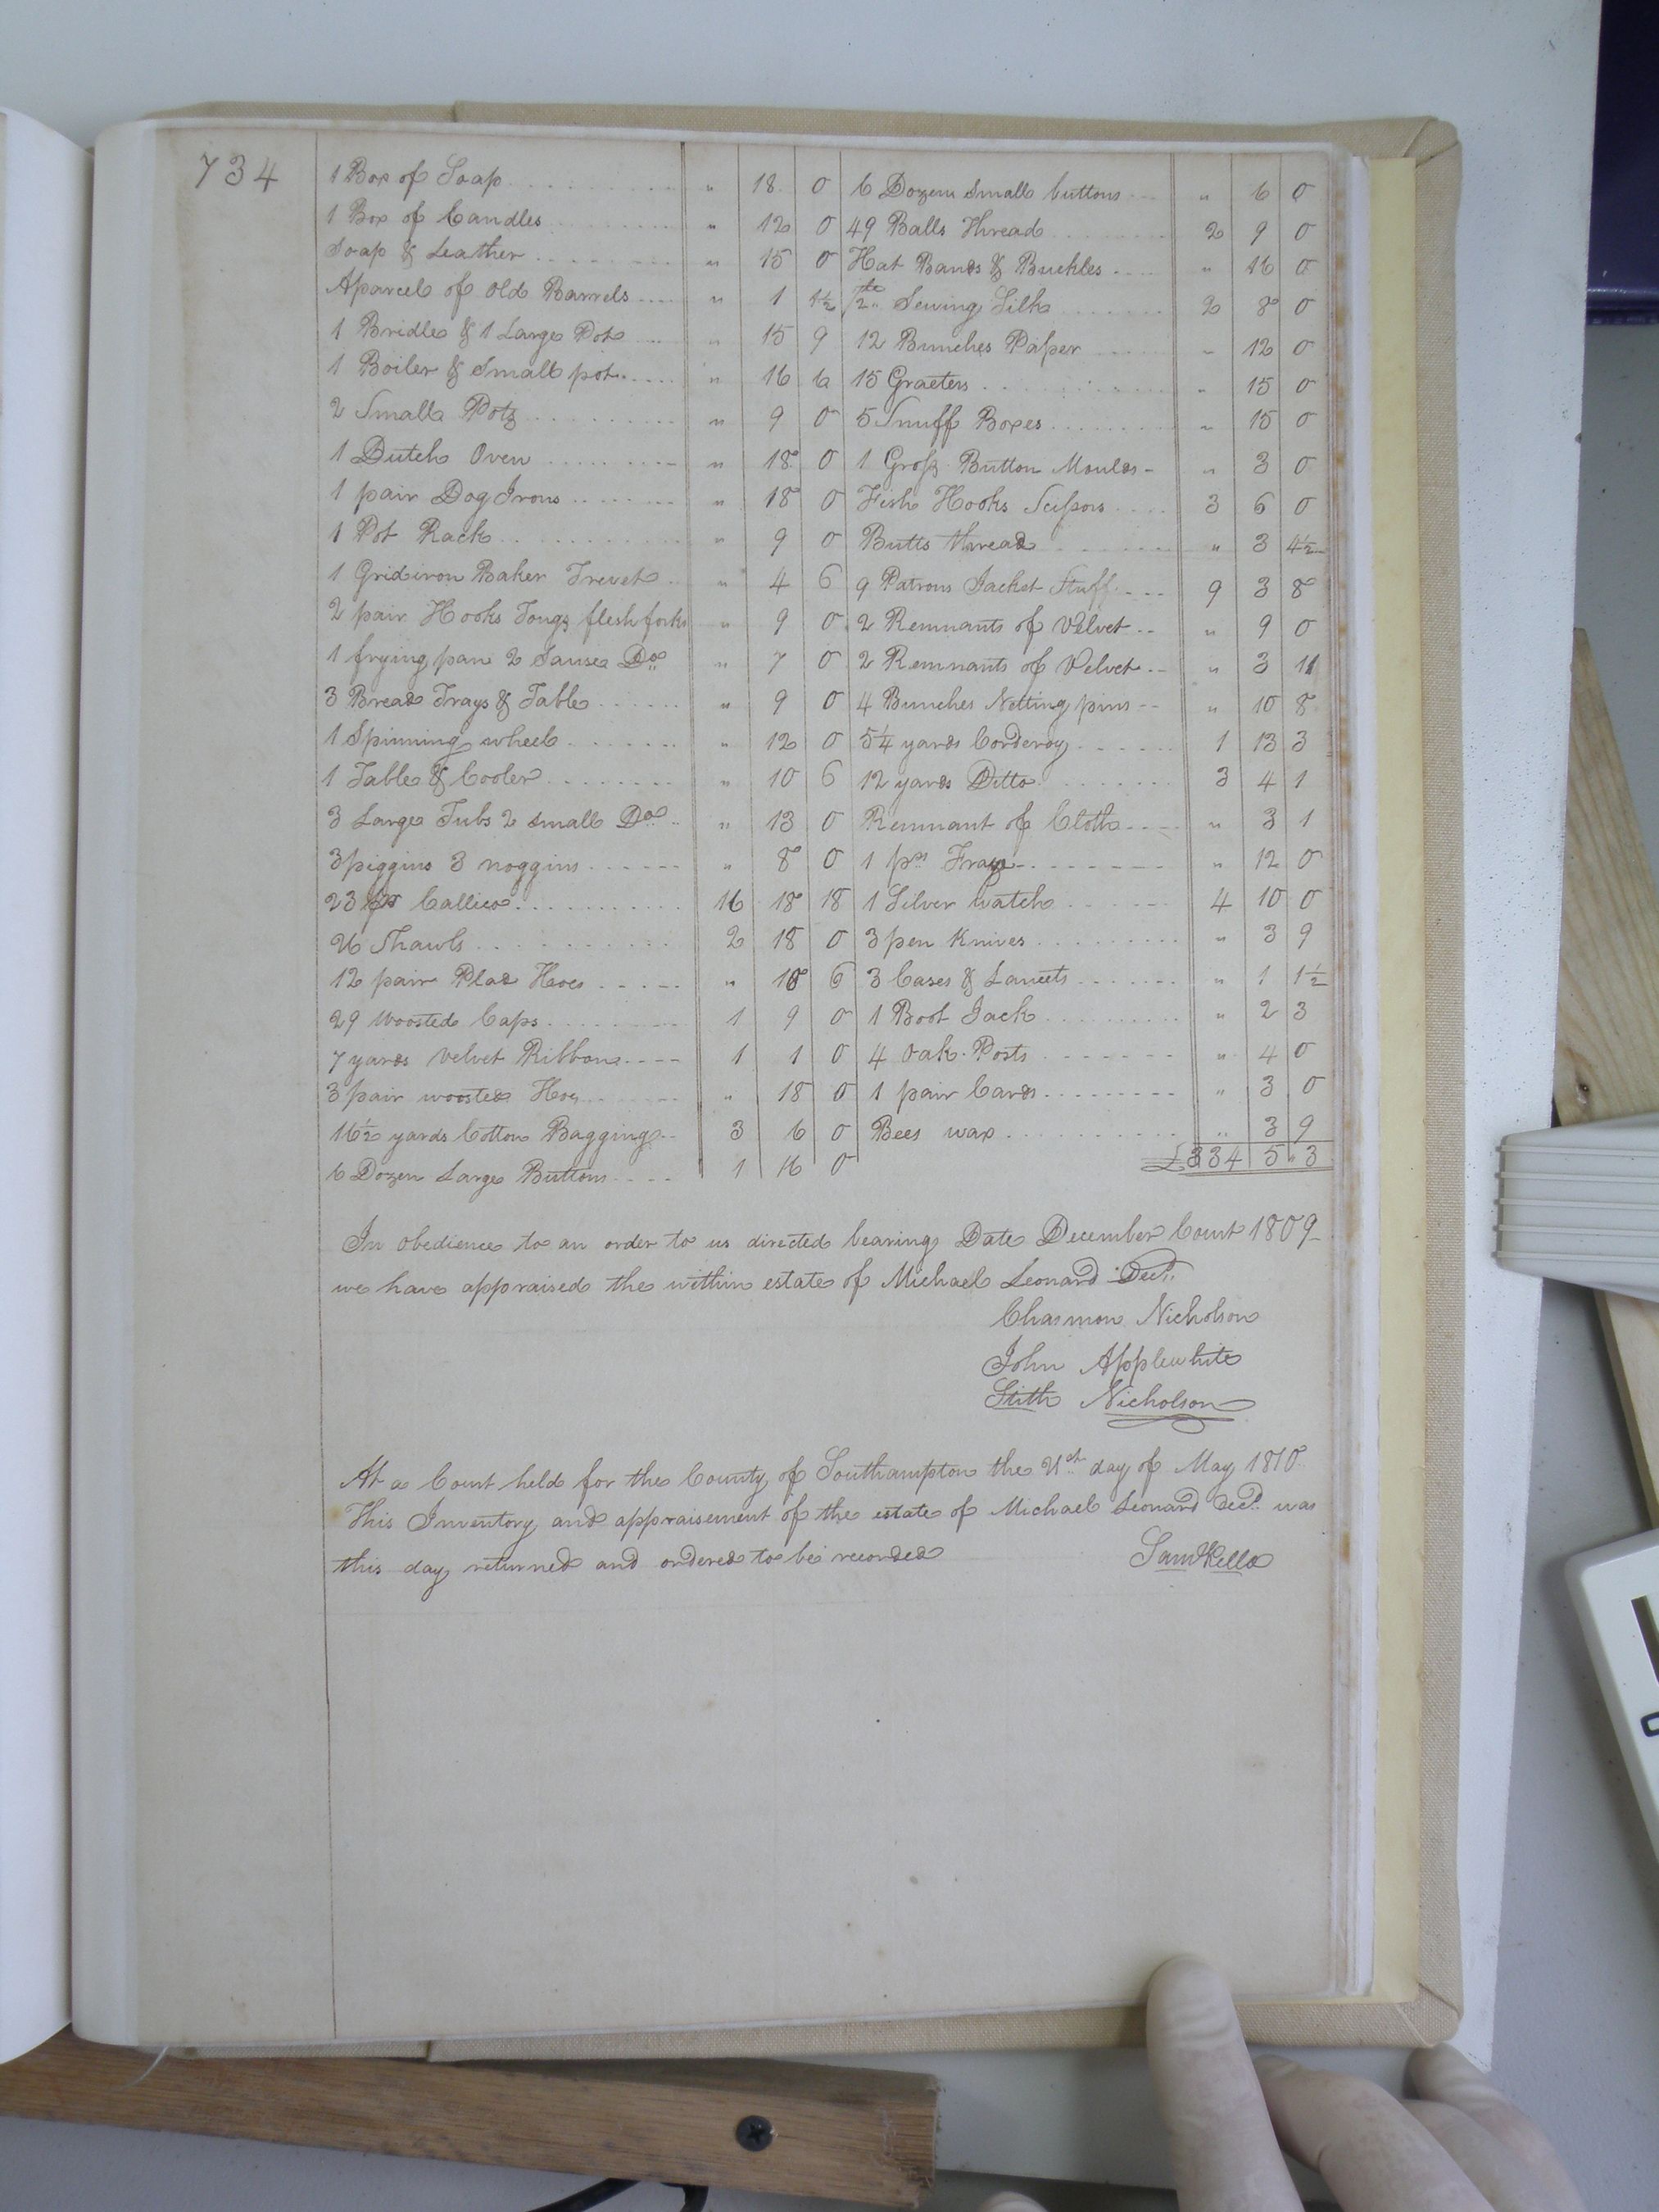 734
1 Box of Soap " 18 0
1 Box of Candles " 12 0
Soap & Leather " 15 0
A parcel of old Barrels " 1 1½
1 Bridle & 1 Large Pot " 15 9
1 Boiler & Small pot " 16 6
2 Small Pots " 9 0
1 Dutch Oven " 18 0
1 pair Dog Irons " 18 0
1 Pot Rack " 9 0
1 Gridiron Baker Trevet " 4 6
2 pair Hooks Tongs flesh forks " 9 0
1 frying pan 2 Sause Do " 7 0
3 Bread Trays & Table " 9 0
1 Spinning wheel " 12 0
1 Table & Cooler " 10 6
3 Large Tubs 2 small Do " 13 0
3 piggins 3 noggins " 8 0
23 ps Callico 16 18 18
26 Shawls 2 18 0
12 pair Plad Hoes " 18 6
29 Woosted Caps 1 9 0
7 yards Velvet Ribbon 1 1 0
3 pair woosted Hos " 18 0
16½ yards Cotton Bagging 3 6 0
6 Dozen Large Buttons 1 16 0
6 Dozen Small buttons " 6 0
49 Balls Thread 2 9 0
Hat Bands & Buckles " 16 0
Sewing Silk 2 8 0
12 Bunches Paper " 12 0
15 Graeters " 15 0
5 Snuff Boxes " 15 0
1 Gross Button Moulds " 3 0
Fish Hooks Scissors 3 6 0
Butts thread " 3 4½
9 Patrons Jacket Stuff 9 3 8
2 Remnants of Velvet " 9 0
2 Remnants of Velvet " 3 11
4 Bunches Netting pins " 10 8
5¼ yards Corderoy 1 13 3
12 yards Ditto 3 4 1
Remnant of Cloth " 3 1
1 ps " 12 0
1 Silver watch 4 10 0
3 pen Knives " 3 9
3 Cases & Lancets " 1 1½
1 Boot Jack " 2 3
4 Oak Posts " 4 0
1 pair Cards " 3 0
Bees wax " 3 9
£334 5 3
In obedience to an order to us directed bearing Date December Court 1809
we have appraised the within estate of Michael Leonard Decd.
Chasmon Nicholson
John Applewhite
Stith Nicholson
At a Court held for the County of Southampton the 21st day of May 1810
This Inventory and appraisement of the estate of Michael Leonard decd. was
this day returned and ordered to be recorded
Saml Kello